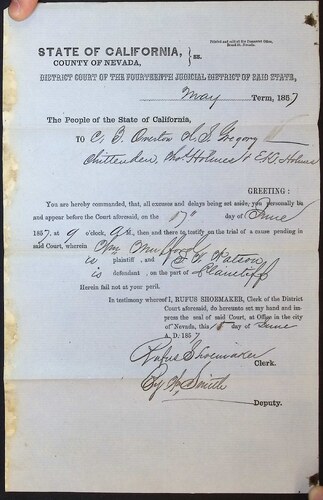 Printed and sold at the Democrat Office,
Broad St. Nevada.
STATE OF CALIFORNIA, } ss.
COUNTY OF NEVADA,
DISTRICT COURT OF THE FOURTEENTH JUDICIAL DISTRICT OF SAID STATE,
May Term, 1857
The People of the State of California,
TO C. B. Overton L. S. Gregory
Chittenden, Thos Holmes & E K Holmes
GREETING:
You are hereby commanded, that, all excuses and delays being set aside, you personally be
and appear before the Court aforesaid, on the 17th day of June
1857 at 9 o'clock, A.M., then and there to testify on the trial of a cause pending in
said Court, wherein Wm Mulford
is plaintiff, and Watson
is defendant, on the part of Plaintiff
Herein fail not at your peril.
In testimony whereof I, RUFUS SHOEMAKER, Clerk of the District
Court aforesaid, do hereunto set my hand and im-
press the seal of said Court, at Office in the city
of Nevada, this 15 day of June
A. D. 1857
Rufus Shoemaker
Clerk.
By W. Smith
Deputy.